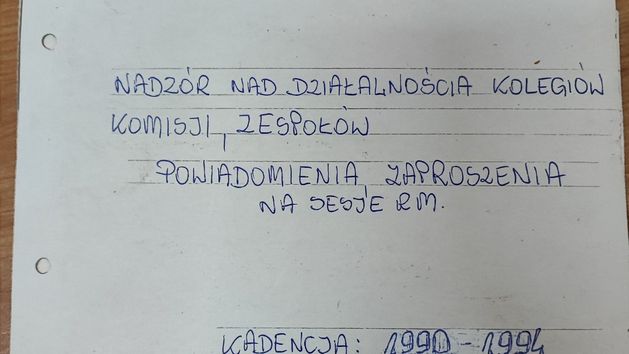 NADZÓR NAD DZIAŁALNOŚCIA KOLEGIÓW
KOMISJI, ZESPOŁÓW
POWIADOMIENIA, ZAPROSZENIA
NA SESJE RM.
KADENCJA: 1990-1994